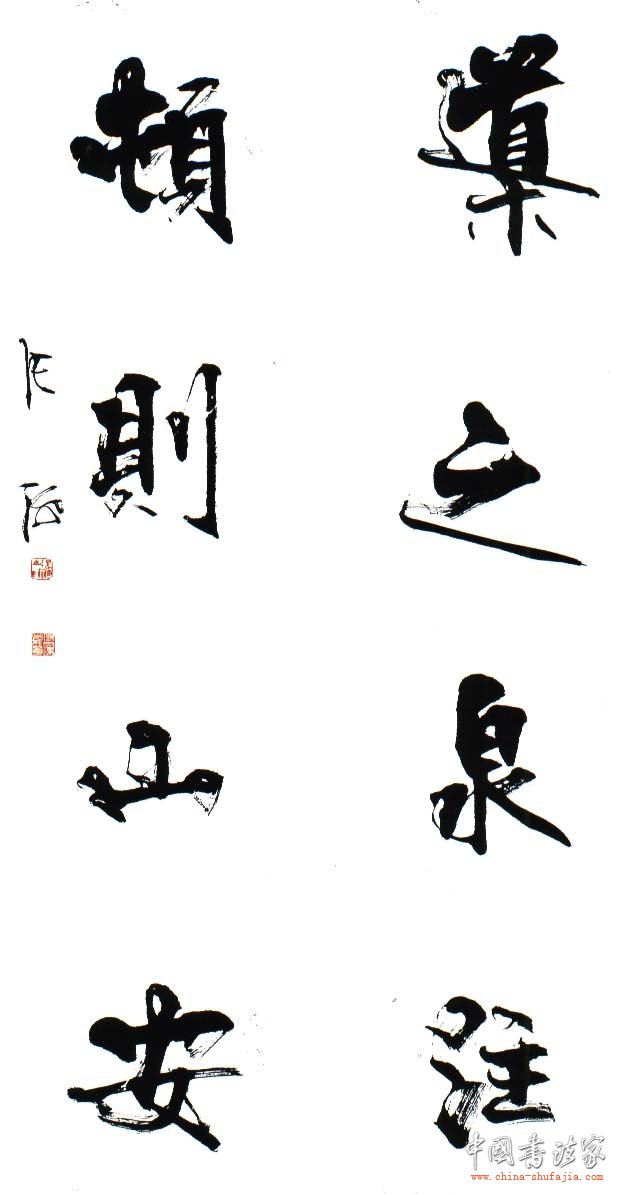 導之泉注
頓則山安
张海
中国书法家
www.china-shufajia.com